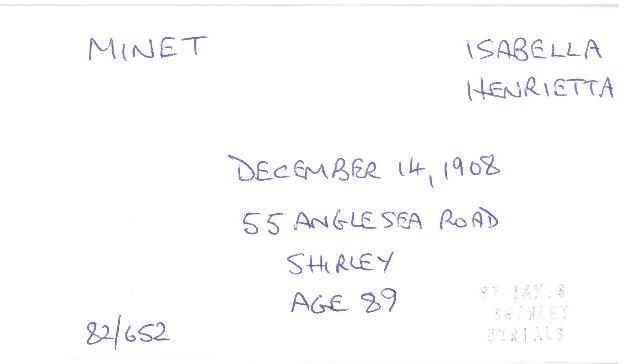 MINET ISABELLA
HENRIETTA
DECEMBER 14, 1908
55 ANGLESEA ROAD
SHIRLEY
AGE 89
ST JAMES
SHIRLEY
BURIALS
82/652